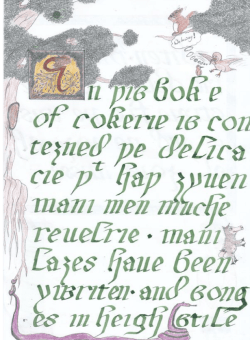 In þis bok e
of cokerie is con
teyned þe delica
cie þᵗ haþ ȝyuen
mani men muche
reuelrie · mani
layes haue been
ywriten · and song
es in heigh stile